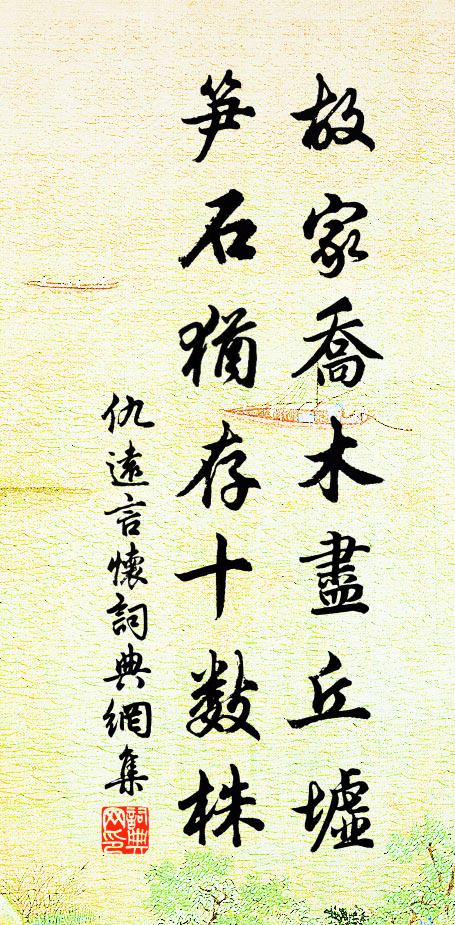 故家喬木盡丘墟
笋石猶存十數株
仇遠言懷詞典網集
詞典网印